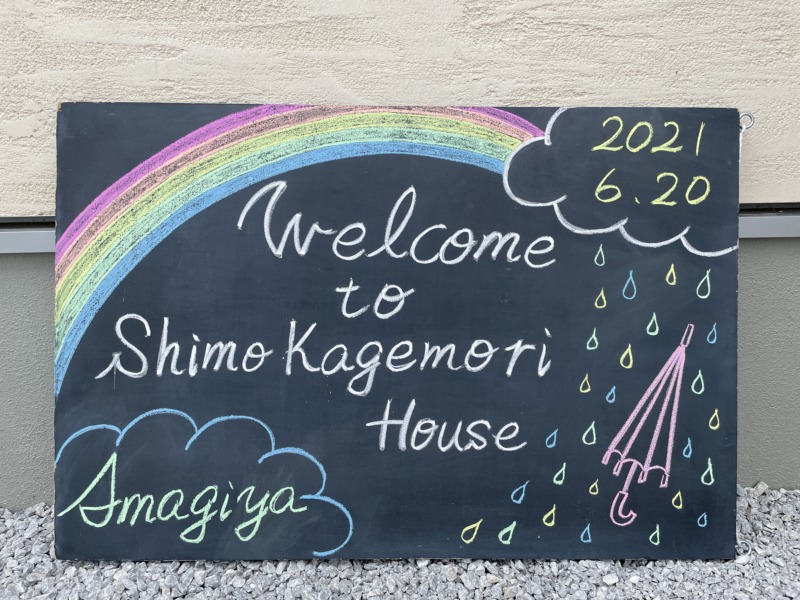 2021
6.20
Welcome
to
Shimo Kagemori
House
Amagiya